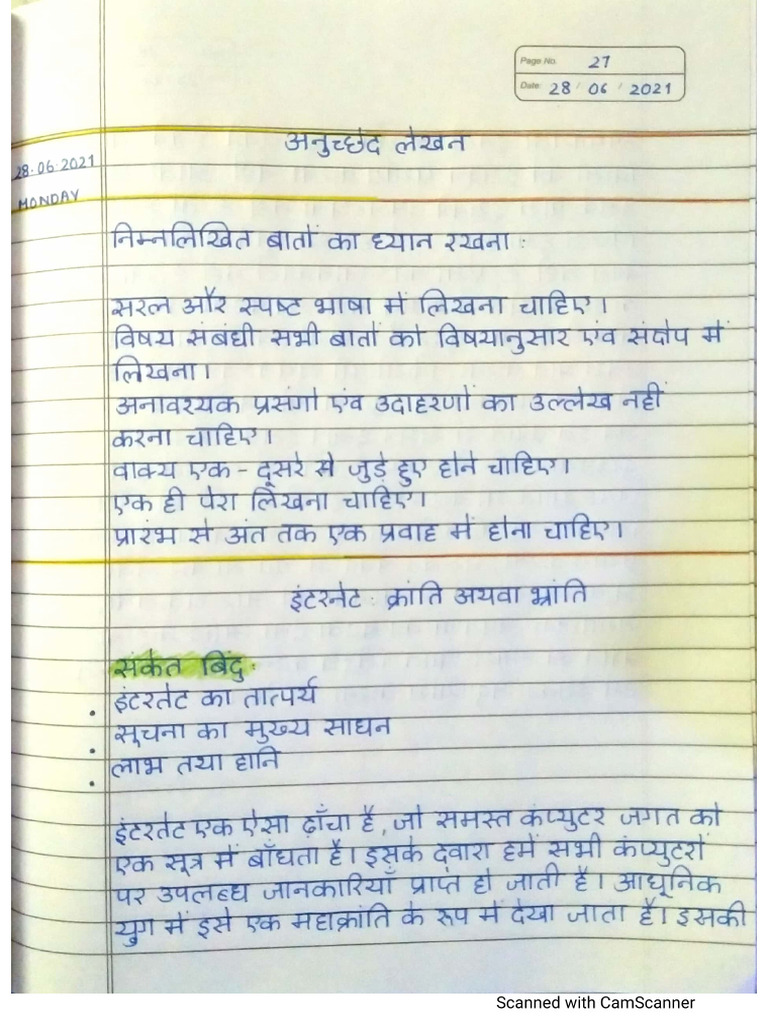 Page No. 27
Date 28 / 06 / 2021
अनुच्छेद लेखन
28.06.2021
MONDAY
निम्नलिखित बातों का ध्यान रखना :
सरल और स्पष्ट भाषा में लिखना चाहिए।
विषय संबंधी सभी बातों को विषयानुसार एंव संक्षेप में
लिखना।
अनावश्यक प्रसंगों एंव उदाहरणों का उल्लेख नहीं
करना चाहिए।
वाक्य एक - दूसरे से जुड़े हुए होने चाहिए।
एक ही पेरा लिखना चाहिए।
प्रारंभ से अंत तक एक प्रवाह में होना चाहिए।
इंटरनेट : क्रांति अथवा भ्रांति
संकेत बिंदु :
• इंटरनेट का तात्पर्य
• सूचना का मुख्य साधन
• लाभ तथा हानि
इंटरनेट एक ऐसा ढ़ाँचा है, जो समस्त कंप्युटर जगत को
एक सूत्र में बाँधता है। इसके दवारा हमें सभी कंप्युटरों
पर उपलब्ध जानकारियाँ प्राप्त हो जाती है। आधूनिक
युग में इसे एक महाक्रांति के रूप में देखा जाता है। इसकी
Scanned with CamScanner